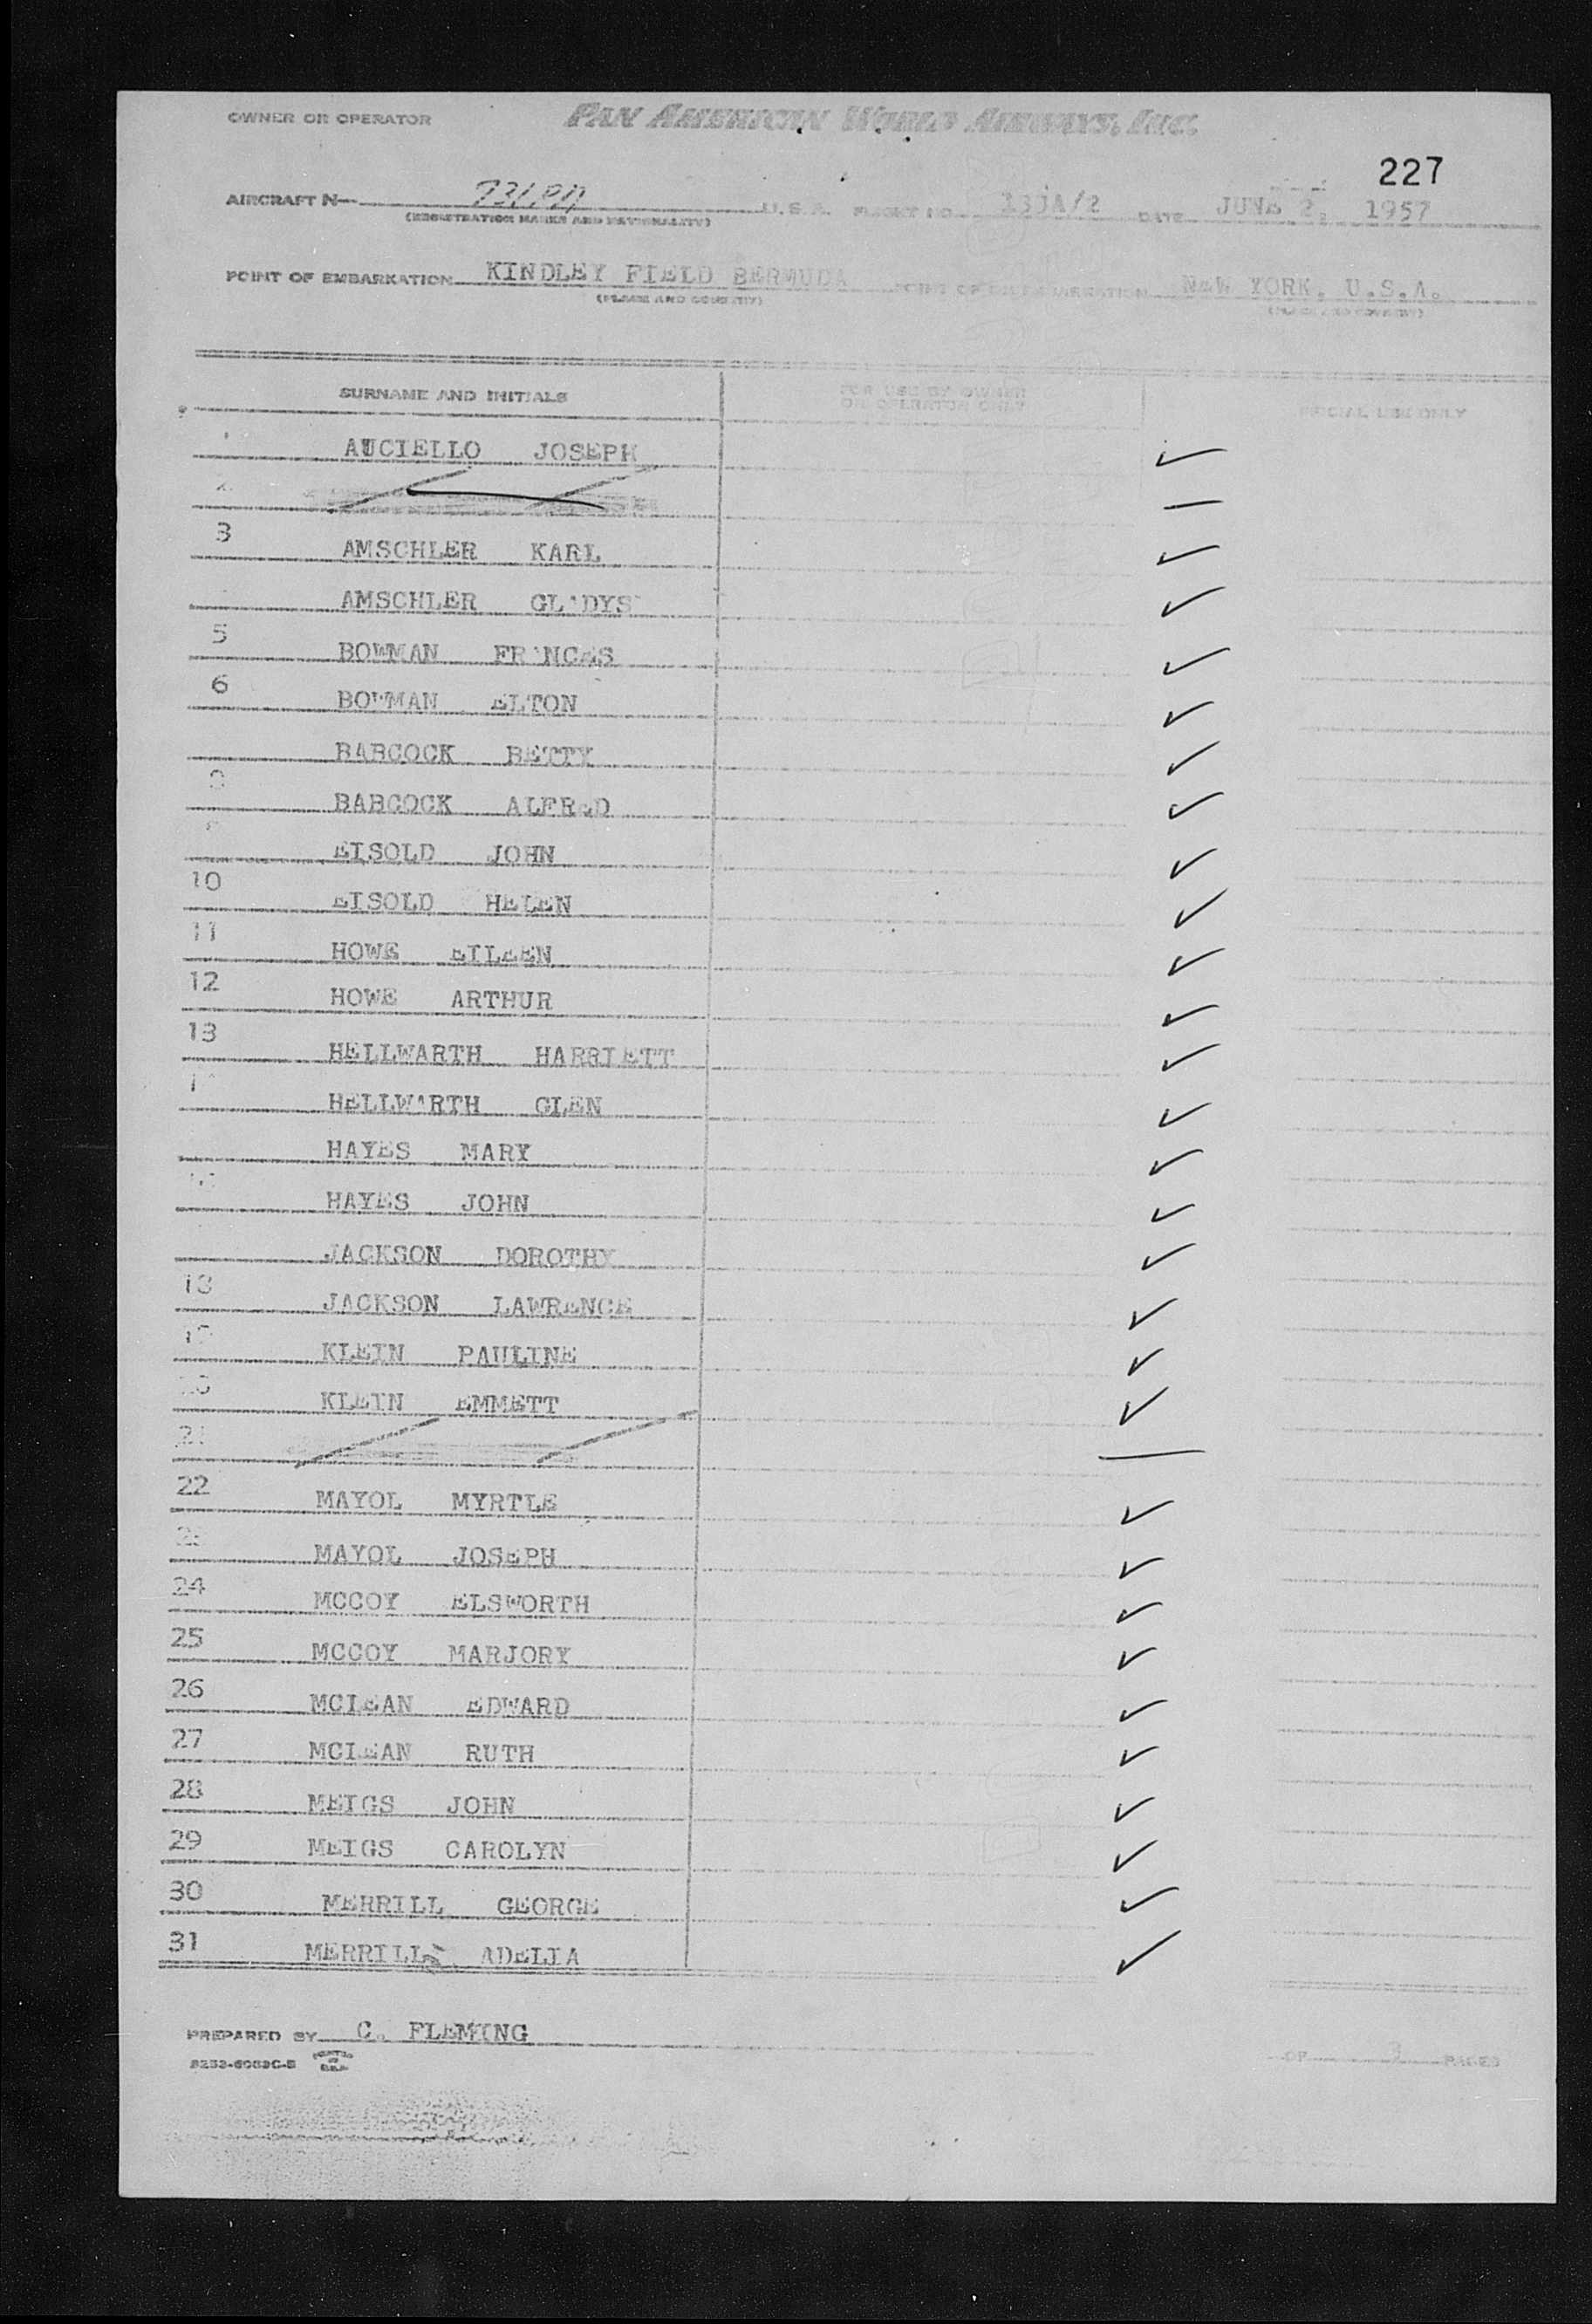 OWNER OR OPERATOR PAN AMERICAN WORLD AIRWAYS, INC.
227
AIRCRAFT N— U.S.A. FLIGHT NO. DATE JUNE 2, 1957
(REGISTRATION MARKS AND NATIONALITY)
POINT OF EMBARKATION KINDLEY FIELD BERMUDA POINT OF DISEMBARKATION NEW YORK, U.S.A.
(PLACE AND COUNTRY) (PLACE AND COUNTRY)
SURNAME AND INITIALS FOR USE BY OWNER OR OPERATOR ONLY OFFICIAL USE ONLY
AUCIELLO JOSEPH ✓
3 AMSCHLER KARL ✓
AMSCHLER GLADYS ✓
5 BOWMAN FRANCES ✓
6 BOWMAN ELTON ✓
BABCOCK BETTY ✓
8 BABCOCK ALFRED ✓
EISOLD JOHN ✓
10 EISOLD HELEN ✓
11 HOWE EILEEN ✓
12 HOWE ARTHUR ✓
13 HELLWARTH HARRIETT ✓
HELLWARTH GLEN ✓
HAYES MARY ✓
HAYES JOHN ✓
JACKSON DOROTHY ✓
18 JACKSON LAWRENCE ✓
19 KLEIN PAULINE ✓
20 KLEIN EMMETT ✓
21
22 MAYOL MYRTLE ✓
23 MAYOL JOSEPH ✓
24 MCCOY ELSWORTH ✓
25 MCCOY MARJORY ✓
26 MCLEAN EDWARD ✓
27 MCLEAN RUTH ✓
28 MEIGS JOHN ✓
29 MEIGS CAROLYN ✓
30 MERRILL GEORGE ✓
31 MERRILL ADELIA ✓
PREPARED BY C. FLEMING
OF PAGES